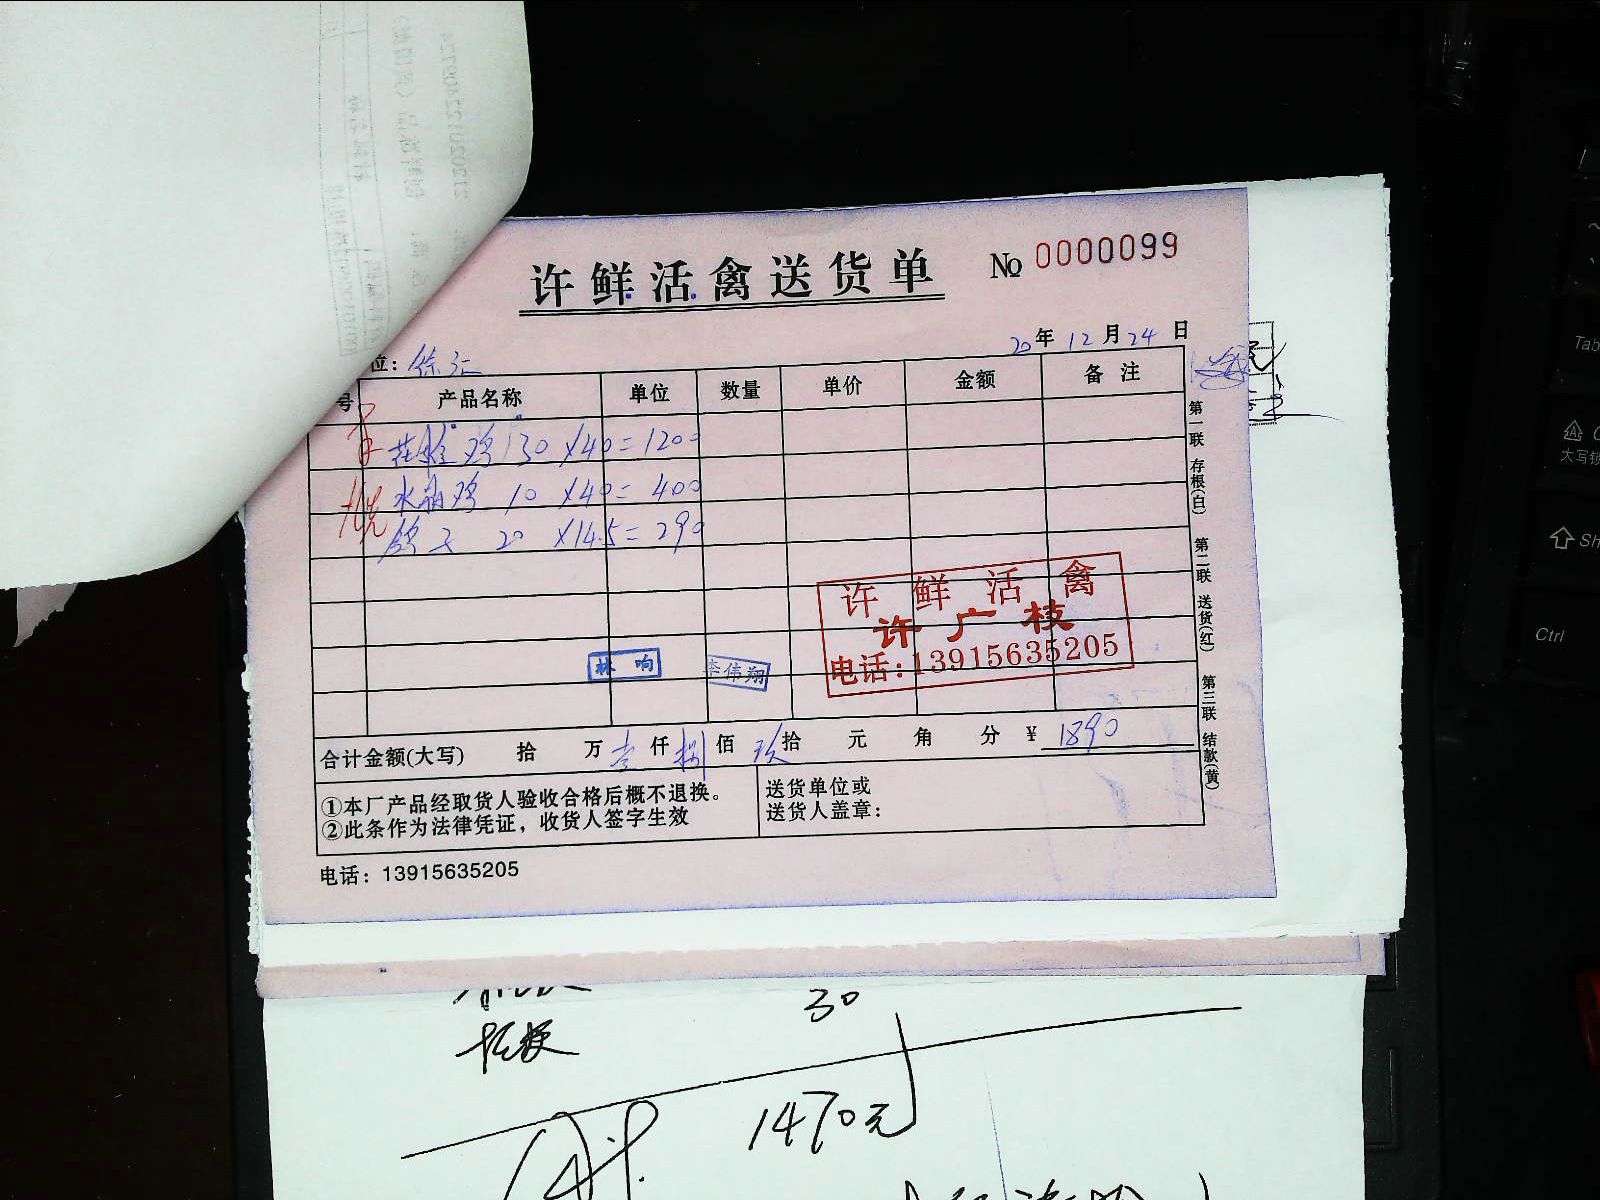 许鲜活禽送货单
№ 0000099
20年12月24日
位：徐汇
号 产品名称 单位 数量 单价 金额 备注
花 鸡 30 ×40=1200
水 鸡 10 ×40= 400
鸽子 20 ×14.5=290
许鲜活禽
许广枝
电话:13915635205
林响
李伟翔
合计金额(大写) 拾 万 壹 仟 捌 佰 玖 拾 元 角 分 ¥ 1890
①本厂产品经取货人验收合格后概不退换。
②此条作为法律凭证，收货人签字生效
送货单位或
送货人盖章：
电话：13915635205
第一联 存根(白)
第二联 送货(红)
第三联 结款(黄)
30
1470元
Tab
大写锁
Sh
Ctrl